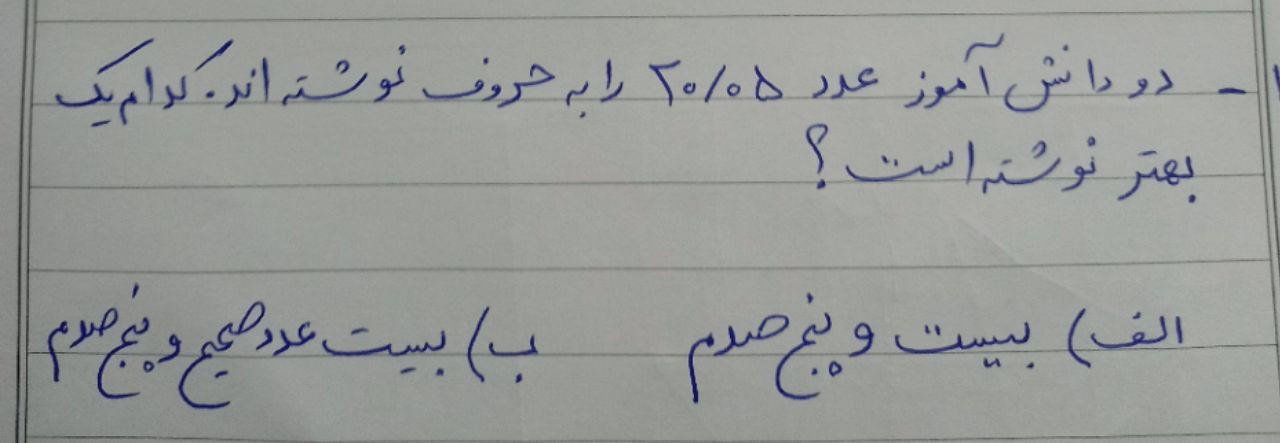 ۱- دو دانش آموز عدد ۲۰/۰۵ را به حروف نوشته اند. کدام یک
بهتر نوشته است؟
الف) بیست و پنج صدم ب) بیست عدد صحیح و پنج صدم